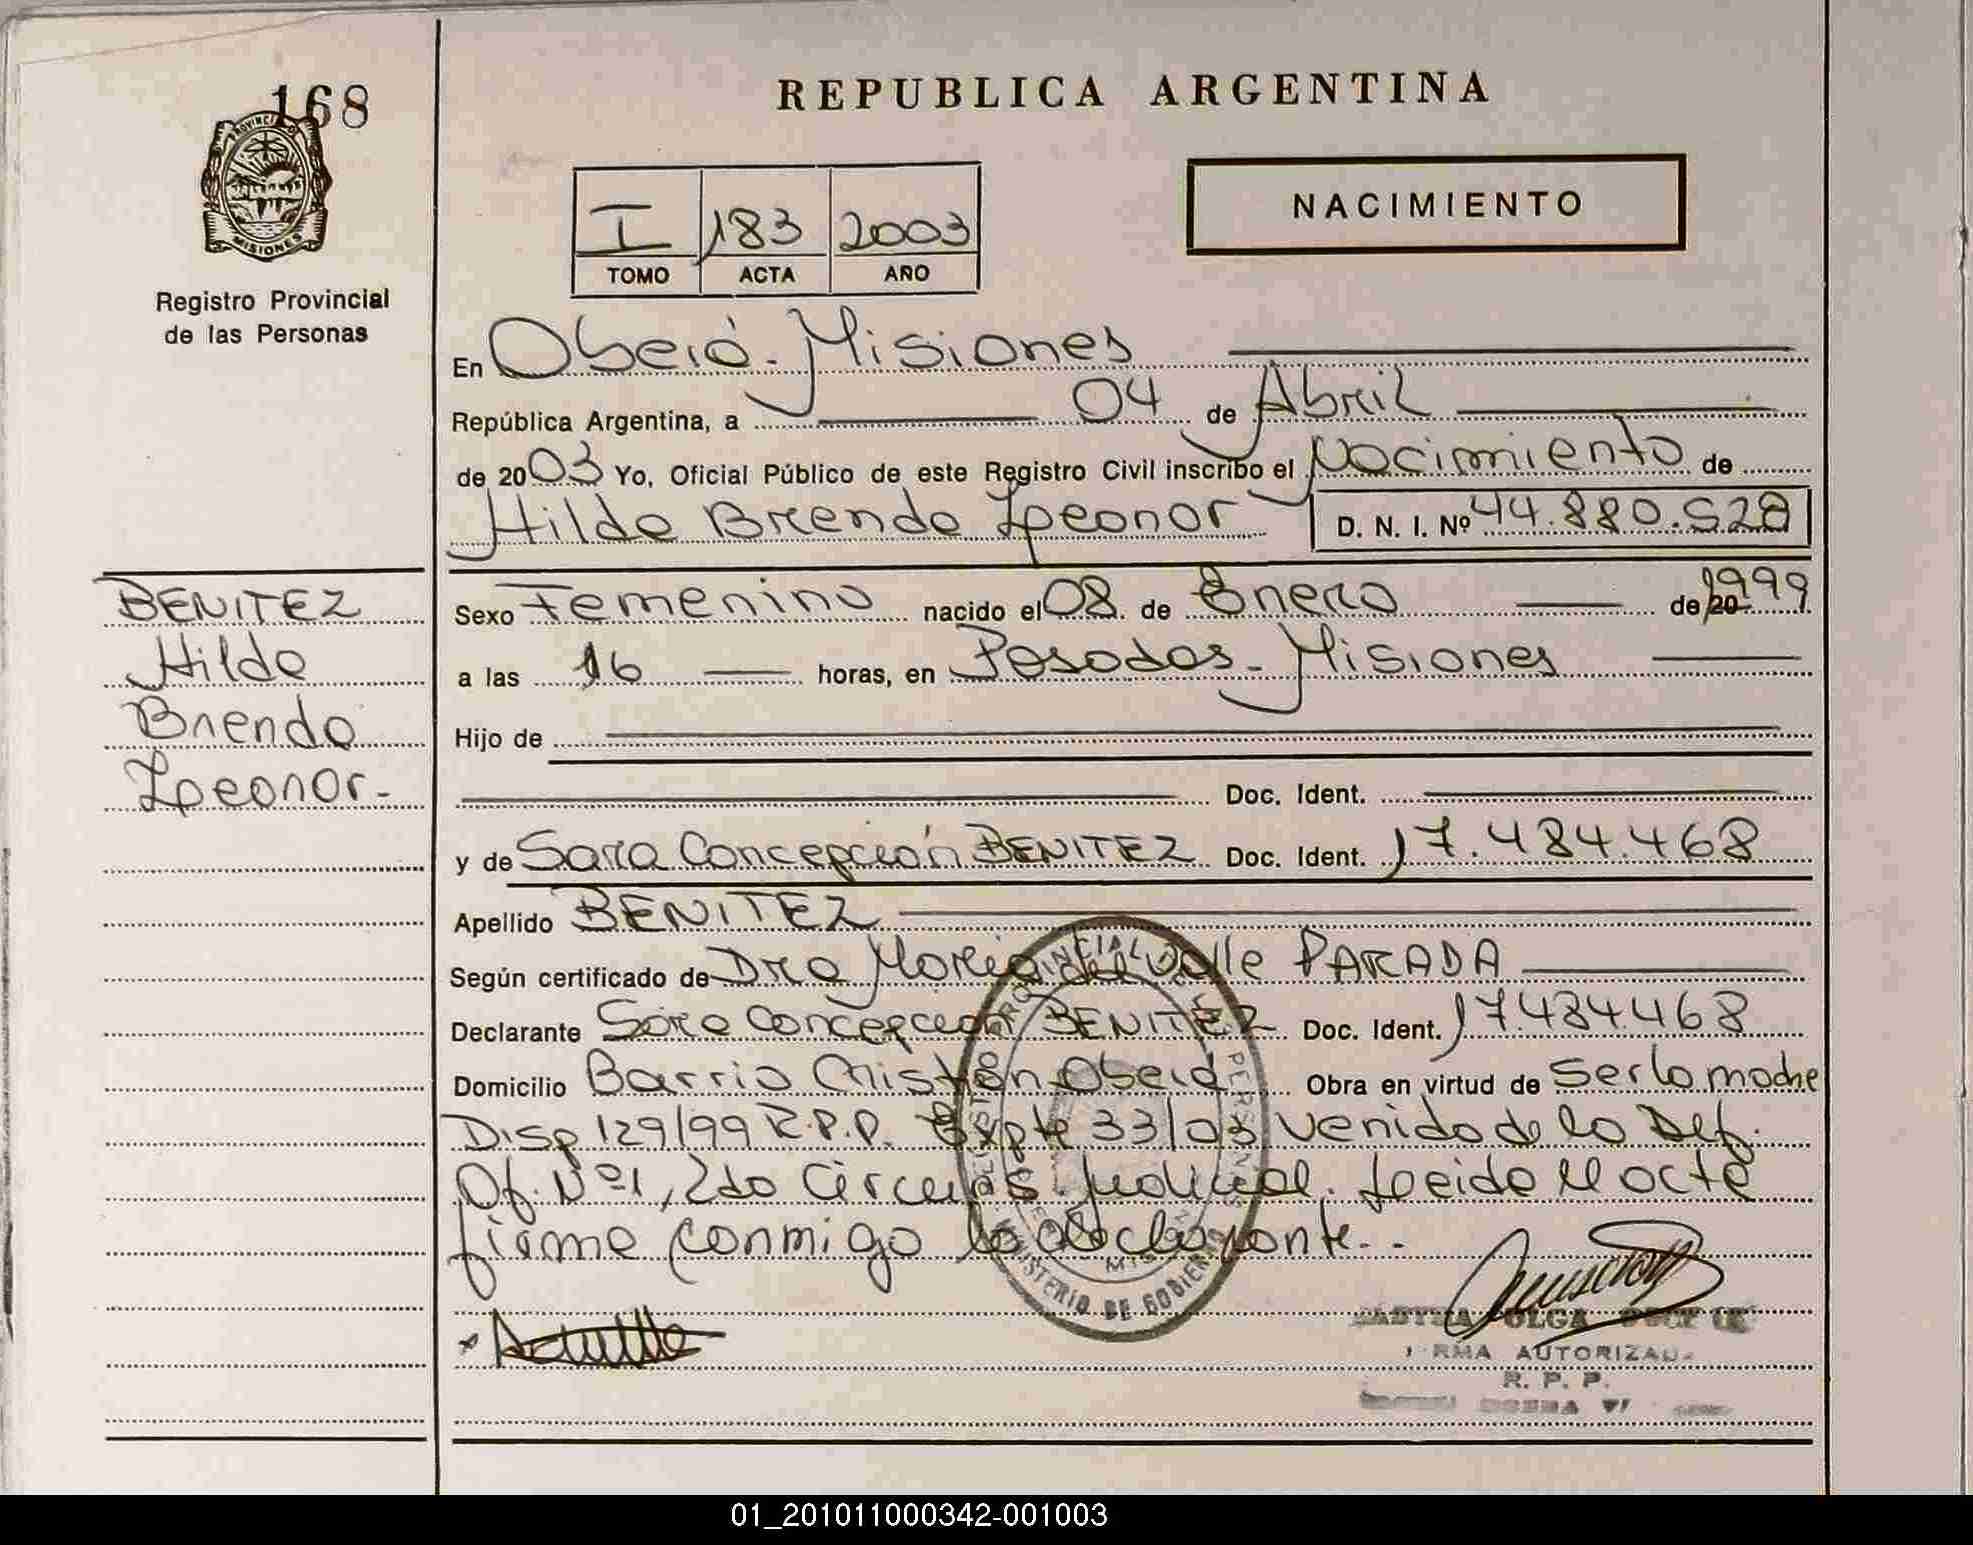 168
PROVINCIA DE
MISIONES
Registro Provincial
de las Personas
BENITEZ
Hilda
Brenda
Leonor-
REPUBLICA ARGENTINA
I 183 2003
TOMO ACTA AÑO
NACIMIENTO
En Oberá - Misiones
República Argentina, a 04 de Abril
de 2003 Yo, Oficial Público de este Registro Civil inscribo el Nacimiento de
Hilda Brenda Leonor D. N. I. Nº 44.880.528
Sexo Femenino nacido el 08 de Enero de 20 1999
a las 16 horas, en Posadas - Misiones
Hijo de
Doc. Ident.
y de Sara Concepción BENITEZ Doc. Ident. 17.484.468
Apellido BENITEZ
Según certificado de Dra María del Valle PARADA
Declarante Sara Concepción BENITEZ Doc. Ident. 17.484.468
Domicilio Barrio Cristian Oberá Obra en virtud de Ser la madre
Disp 129/99 R.P.P. Expte 33/03 venido de la Def.
Of. Nº1, 2da Circuns. Judicial. Leida el acta
firma conmigo la declarante.-
MINISTERIO DE GOBIERNO
OLGA
FIRMA AUTORIZADA
R. P. P.
01_201011000342-001003